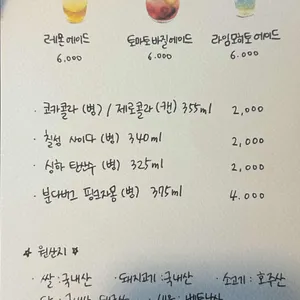 레몬에이드 토마토바질에이드 라임모히또에이드
6.000 6.000 6.000
· 코카콜라 (병) / 제로콜라 (캔) 355ml 2,000
· 칠성 사이다 (병) 340ml 2,000
· 싱하 탄산수 (병) 325ml 2,000
· 분다버그 핑크자몽 (병) 375ml 4.000
☆ 원산지 ☆
· 쌀 : 국내산 · 돼지고기 : 국내산 · 소고기 : 호주산